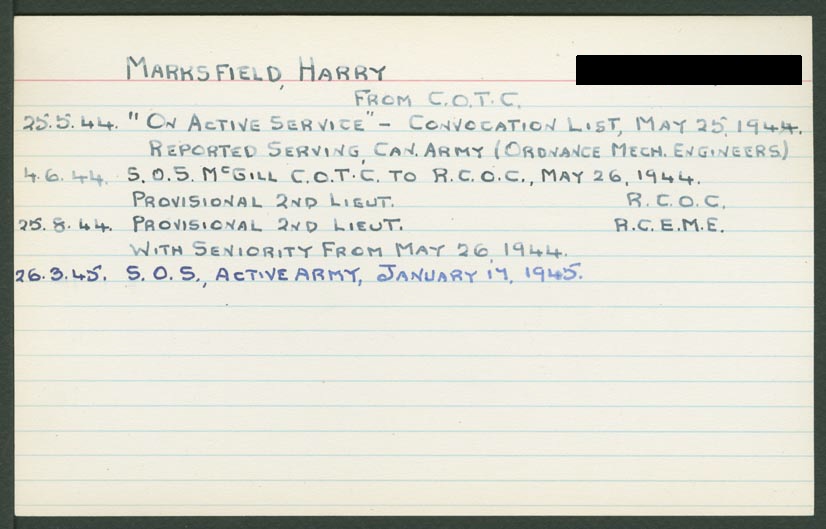 MARKSFIELD, HARRY
FROM C.O.T.C.
25.5.44. "ON ACTIVE SERVICE" - CONVOCATION LIST, MAY 25, 1944.
REPORTED SERVING, CAN. ARMY (ORDNANCE MECH. ENGINEERS)
4.6.44. S.O.S. McGILL C.O.T.C. TO R.C.O.C., MAY 26, 1944.
PROVISIONAL 2ND LIEUT. R.C.O.C.
25.8.44. PROVISIONAL 2ND LIEUT. R.C.E.M.E.
WITH SENIORITY FROM MAY 26, 1944.
26.3.45. S.O.S., ACTIVE ARMY, JANUARY 17, 1945.